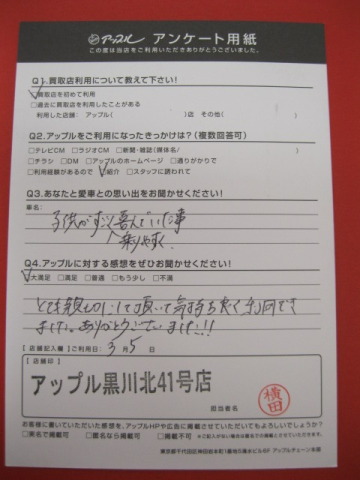 アップル アンケート用紙
この度は当店をご利用いただきありがとうございました。
Q1.買取店利用について教えて下さい!
☑買取店を初めて利用
□過去に買取店を利用したことがある
利用した店舗: アップル( )店 その他( )
Q2.アップルをご利用になったきっかけは?(複数回答可)
□テレビCM □ラジオCM □新聞・雑誌(媒体名/ )
□チラシ □DM □アップルのホームページ □通りがかりで
□利用経験があるので ☑紹介 □スタッフに誘われて
Q3.あなたと愛車との思い出をお聞かせください!
車名:
子供がすごく喜んでいた事
乗りやすく
Q4.アップルに対する感想をぜひお聞かせください!
☑大満足 □満足 □普通 □もう少し □不満
とても親切にして頂いて気持ち良く利用でき
ました。ありがとうございました!!
【店舗記入欄】ご利用日: 3月5日
【店舗印】
アップル黒川北41号店
担当者名
横田
お客様に書いていただいた感想を、アップルHPや広告に掲載させていただいてもよろしいでしょうか?
□実名で掲載可 □匿名なら掲載可 □掲載不可
東京都千代田区神田岩本町1番地5清水ビル6F アップルチェーン本部